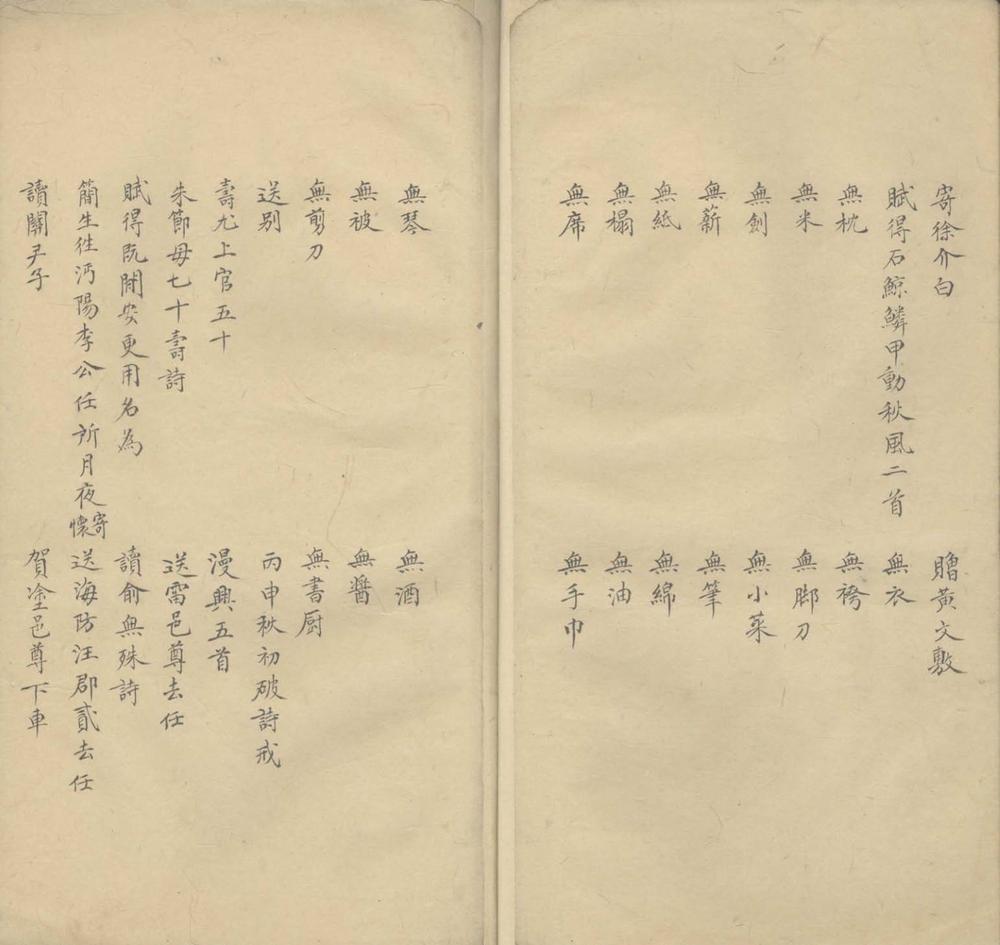 寄徐介白
贈黃文敷
賦得石鯨鱗甲動秋風二首
無衣
無枕
無袴
無米
無脚刀
無劍
無小菜
無薪
無筆
無紙
無綿
無榻
無油
無席
無手巾
無琴
無酒
無被
無醬
無剪刀
無書厨
送别
丙申秋初破詩戒
壽尤上官五十
漫興五首
朱節母七十壽詩
送雷邑尊去任
賦得既閒安更用名為
讀俞無殊詩
簡生徃沔陽李公任所月夜寄懷
送海防汪郡貳去任
讀關尹子
賀塗邑尊下車